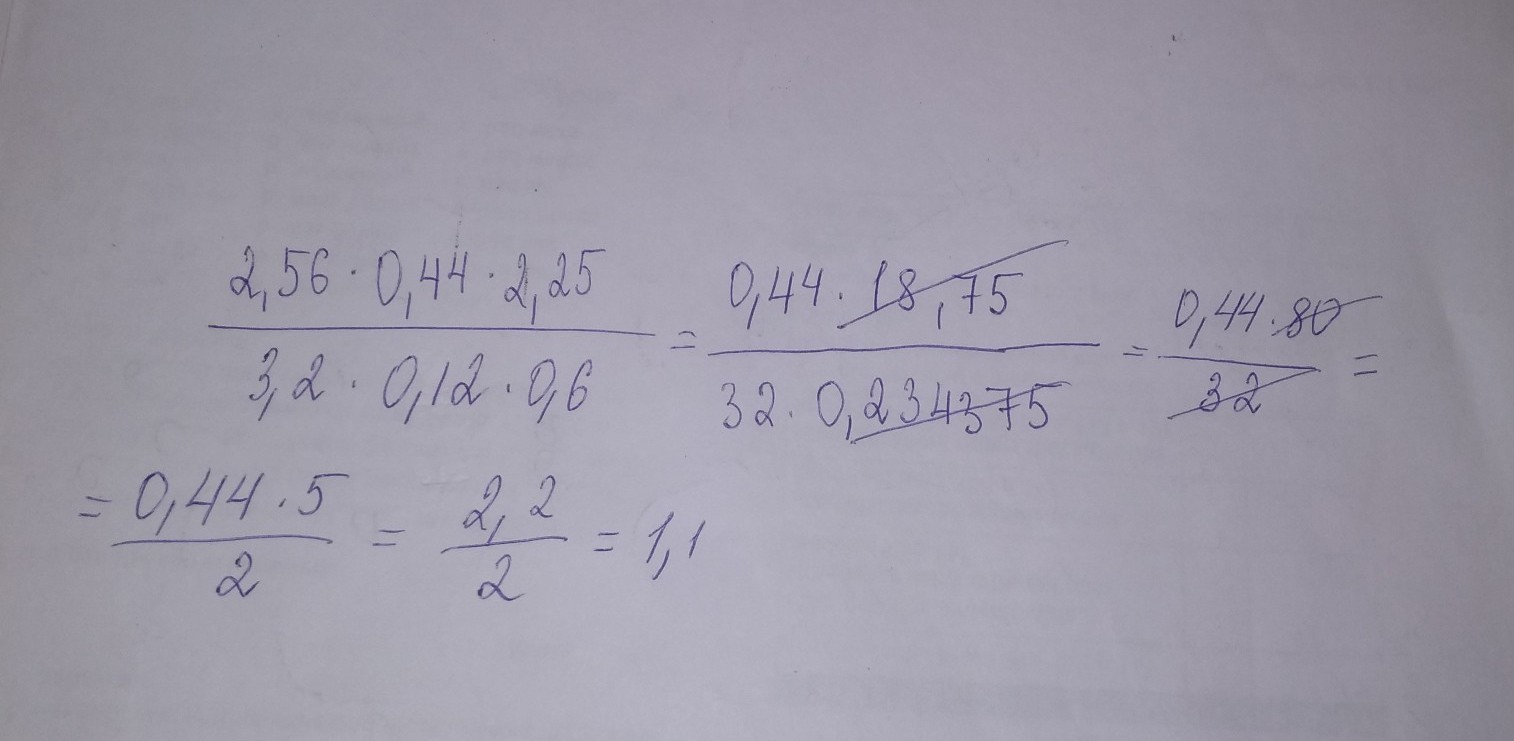 2,56 · 0,44 · 2,25 / 3,2 · 0,12 · 0,6 = 0,44 · 18,75 / 32 · 0,234375 = 0,44 · 80 / 32 =
= 0,44 · 5 / 2 = 2,2 / 2 = 1,1